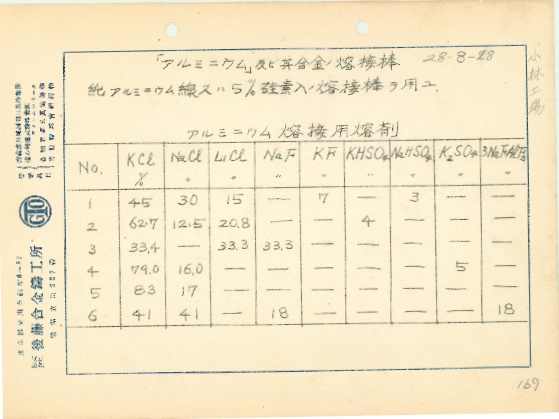 「アルミニウム」及ビ其合金ノ熔接棒 28-8-28
純アルミニウム線又ハ5%硅素入ノ熔接棒ヲ用ユ.
アルミニウム熔接用熔剤
No. KCl NaCl LiCl NaF KF KHSO4 NaHSO4 K2SO4 3NaF·AlF3
% 〃 〃 〃 〃 〃 〃 〃 〃
1 45 30 15 — 7 — 3 — —
2 62.7 12.5 20.8 — — 4 — — —
3 33.4 — 33.3 33.3 — — — — —
4 79.0 16.0 — — — — — 5 —
5 83 17 — — — — — — —
6 41 41 — 18 — — — — 18
小林工場
169
GTO
後藤合金鋳工所